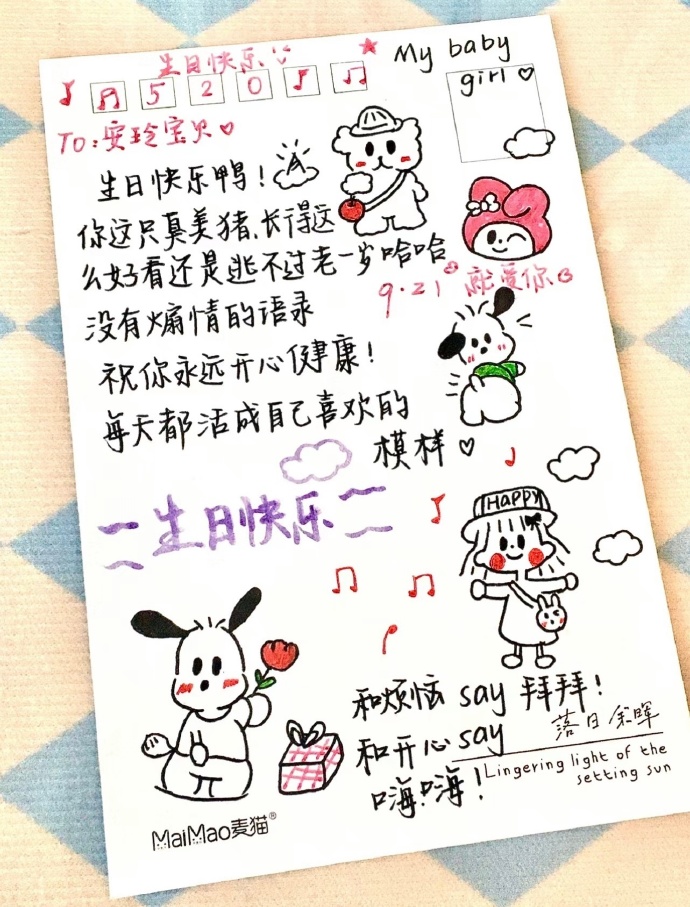 生日快乐
My baby
girl
5 2 0
TO:安玲宝贝
生日快乐鸭!
你这只真美猪、长得这
么好看还是逃不过老一岁哈哈
9.21 就爱你
没有煽情的语录
祝你永远开心健康!
每天都活成自己喜欢的
模样
生日快乐
HAPPY
和烦恼 say 拜拜!
和开心 say
嗨!嗨!
落日余晖
Lingering light of the
setting sun
MaiMao麦猫®